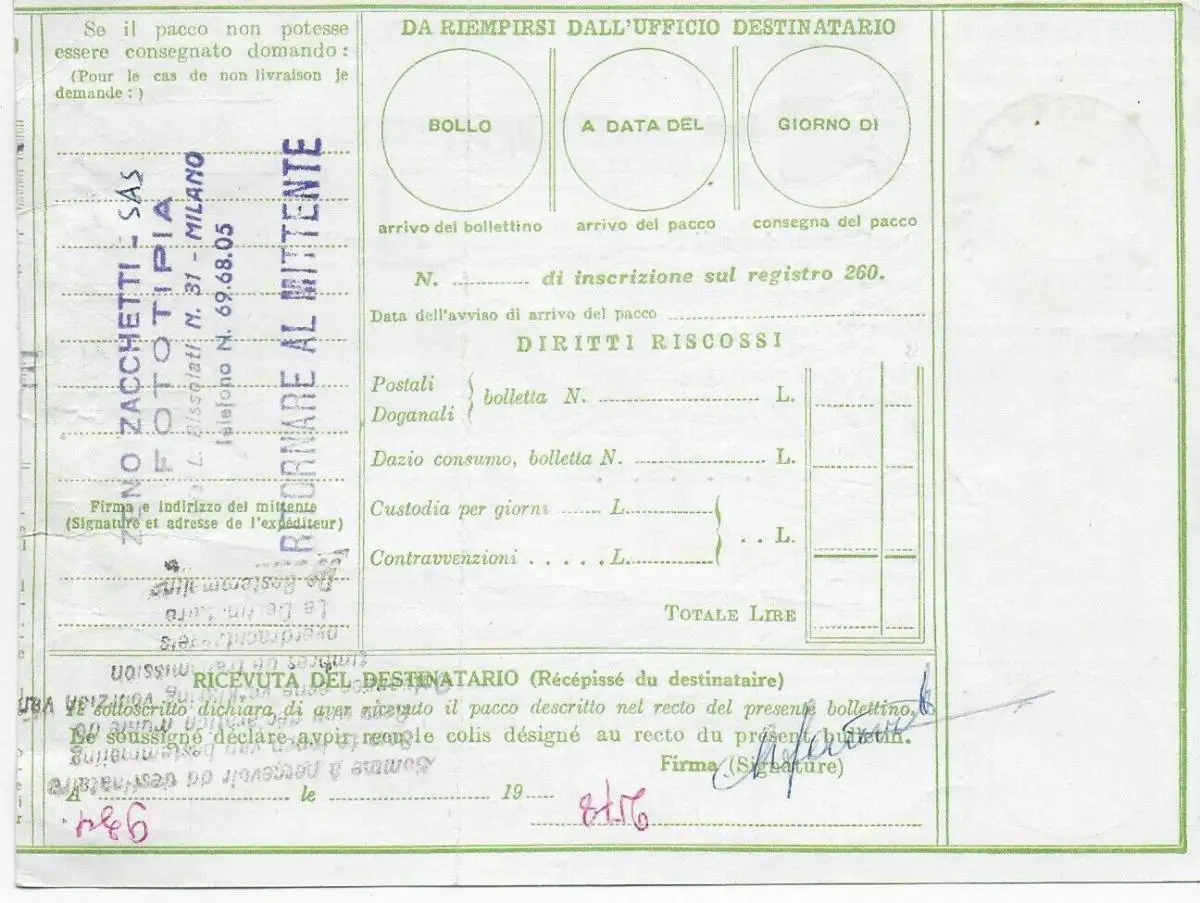 Se il pacco non potesse
essere consegnato domando :
(Pour le cas de non livraison je
demande : )
ZENO ZACCHETTI - SAS
FOTOTIPIA
L. Bissolati N. 31 - MILANO
Telefono N. 69.68.05
RITORNARE AL MITTENTE
Firma e indirizzo del mittente
(Signature et adresse de l'expéditeur)
DA RIEMPIRSI DALL'UFFICIO DESTINATARIO
BOLLO
A DATA DEL
GIORNO DI
arrivo del bollettino
arrivo del pacco
consegna del pacco
N. ........... di inscrizione sul registro 260.
Data dell'avviso di arrivo del pacco
DIRITTI RISCOSSI
Postali
Doganali
bolletta N. L.
Dazio consumo, bolletta N. L.
Custodia per giorni ....... L.
Contravvenzioni . . . . . L.
. . L.
TOTALE LIRE
timbres de transmission
Somme à percevoir du destinataire
RICEVUTA DEL DESTINATARIO (Récépissé du destinataire)
Il sottoscritto dichiara di aver ricevuto il pacco descritto nel recto del presente bollettino.
Le soussigné déclare avoir reçu le colis désigné au recto du présent bulletin.
Firma (Signature)
A le 19